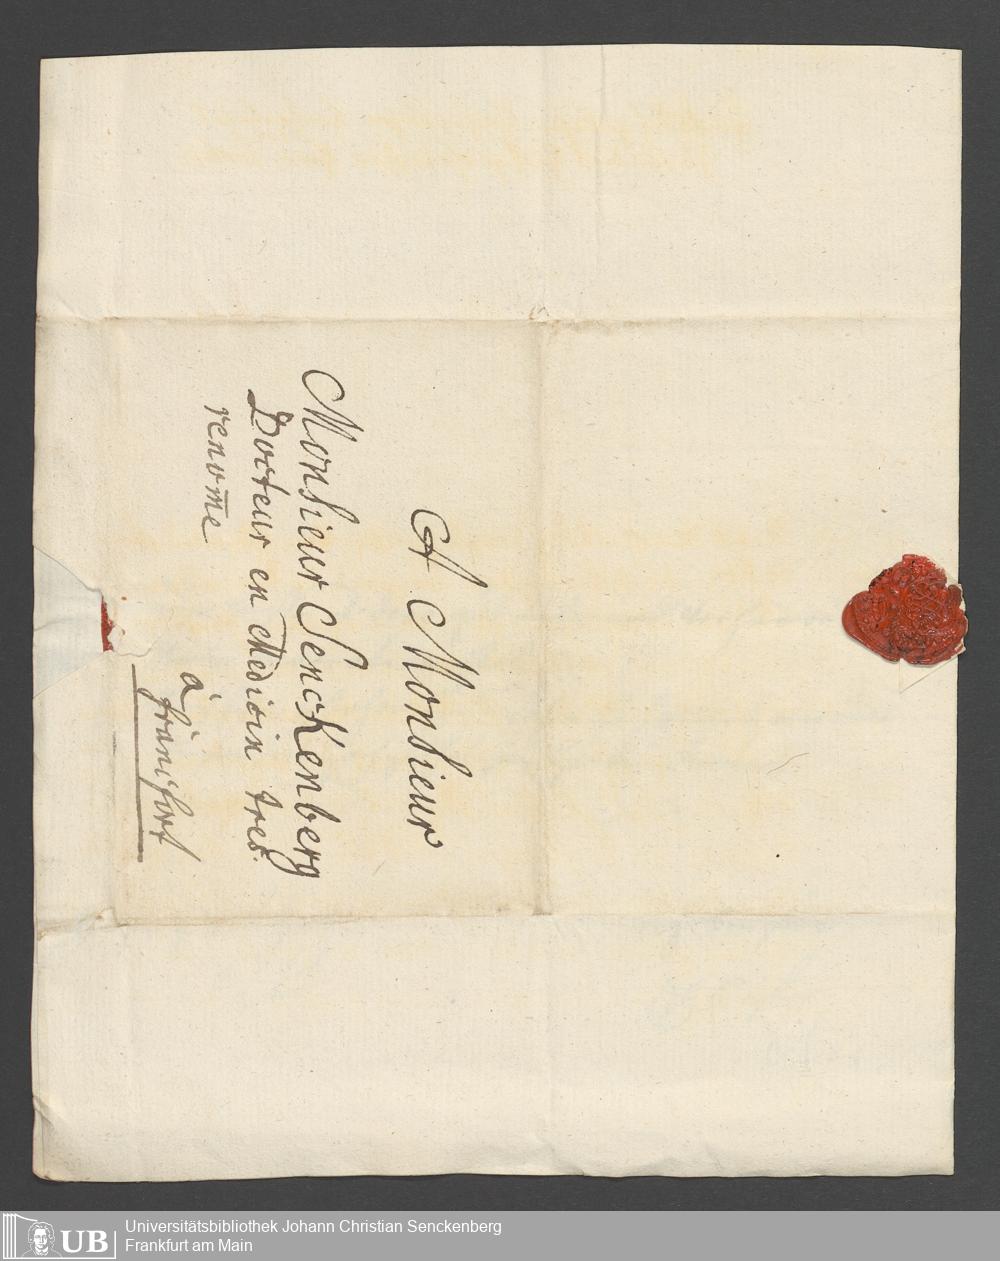 A Monsieur
Monsieur Senckenberg
Docteur en Medicin tres.
renom̅e
à
francfort
Universitätsbibliothek Johann Christian Senckenberg
Frankfurt am Main
UB